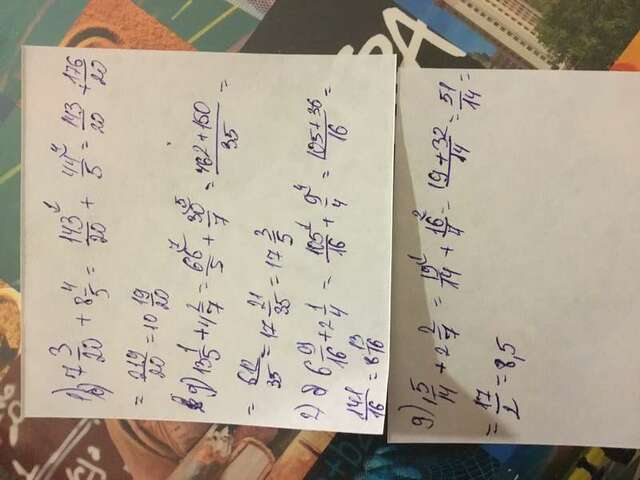 7 3/20 + 8 4/5 = 143/20 + 44/5 = 143/20 + 176/20
= 219/20 = 10 19/20
13 1/5 + 4 2/7 = 66/5 + 30/7 = 462+150/35 =
= 612/35 = 17 21/35 = 17 3/5
2) 6 9/16 + 2 1/4 = 105/16 + 9/4 = 105+36/16 =
141/16 = 8 13/16
g) 1 5/14 + 2 2/7 = 19/14 + 16/7 = 19+32/14 = 51/14 =
= 17/2 = 8,5